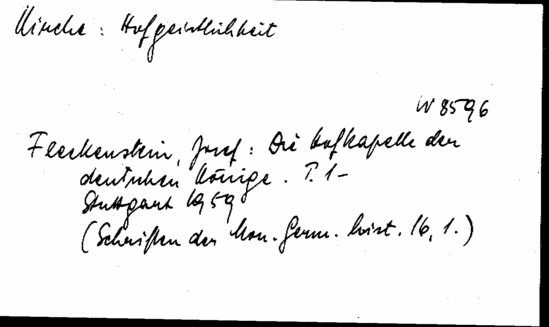 Kirche: Hofgeistlichkeit
W 8596
Fleckenstein, Josef: Die Hofkapelle der
deutschen Könige. T. 1-
Stuttgart 1959
(Schriften der Mon. Germ. hist. 16, 1.)